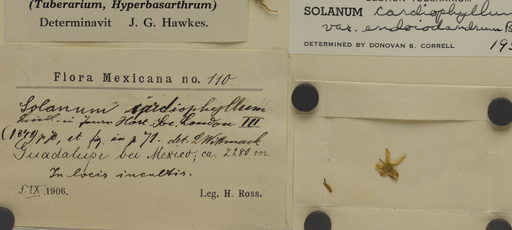 (Tuberarium, Hyperbasarthrum)
Determinavit J. G. Hawkes.
SOLANUM cardiophyllum
var. endoiodandrum B
DETERMINED BY DONOVAN S. CORRELL 195
Flora Mexicana no. 110.
Solanum cardiophyllum
Lindl. in Journ. Hort. Soc. London III
(1848) p. 70, et fig. in p 71. det. L. Wittmack
Guadalupe bei Mexico, ca. 2280 m.
In locis incultis.
5. IX. 1906. Leg. H. Ross.